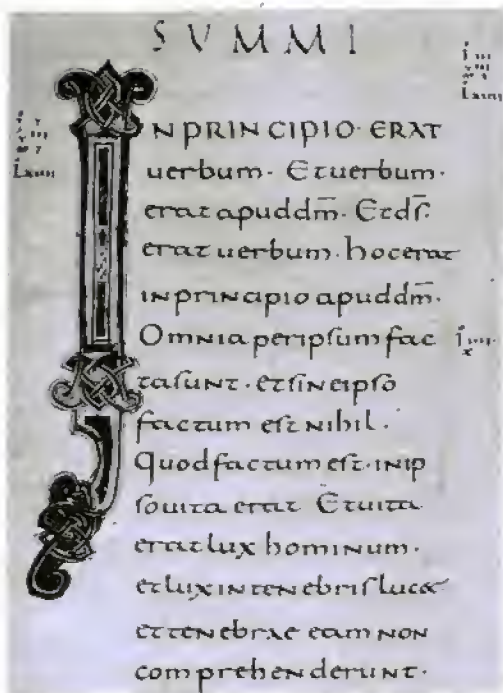 SVMMI
IN PRINCIPIO · ERAT
uerbum · Et uerbum ·
erat apud dm̄ · Et ds̄ ·
erat uerbum · hoc erat
in principio apud dm̄ ·
Omnia per ipsum fac
ta sunt · et sine ipso
factum est nihil ·
Quod factum est · in ip
so uita erat Et uita
erat lux hominum ·
et lux in tenebris lucet
et tenebrae eam non
comprehenderunt ·